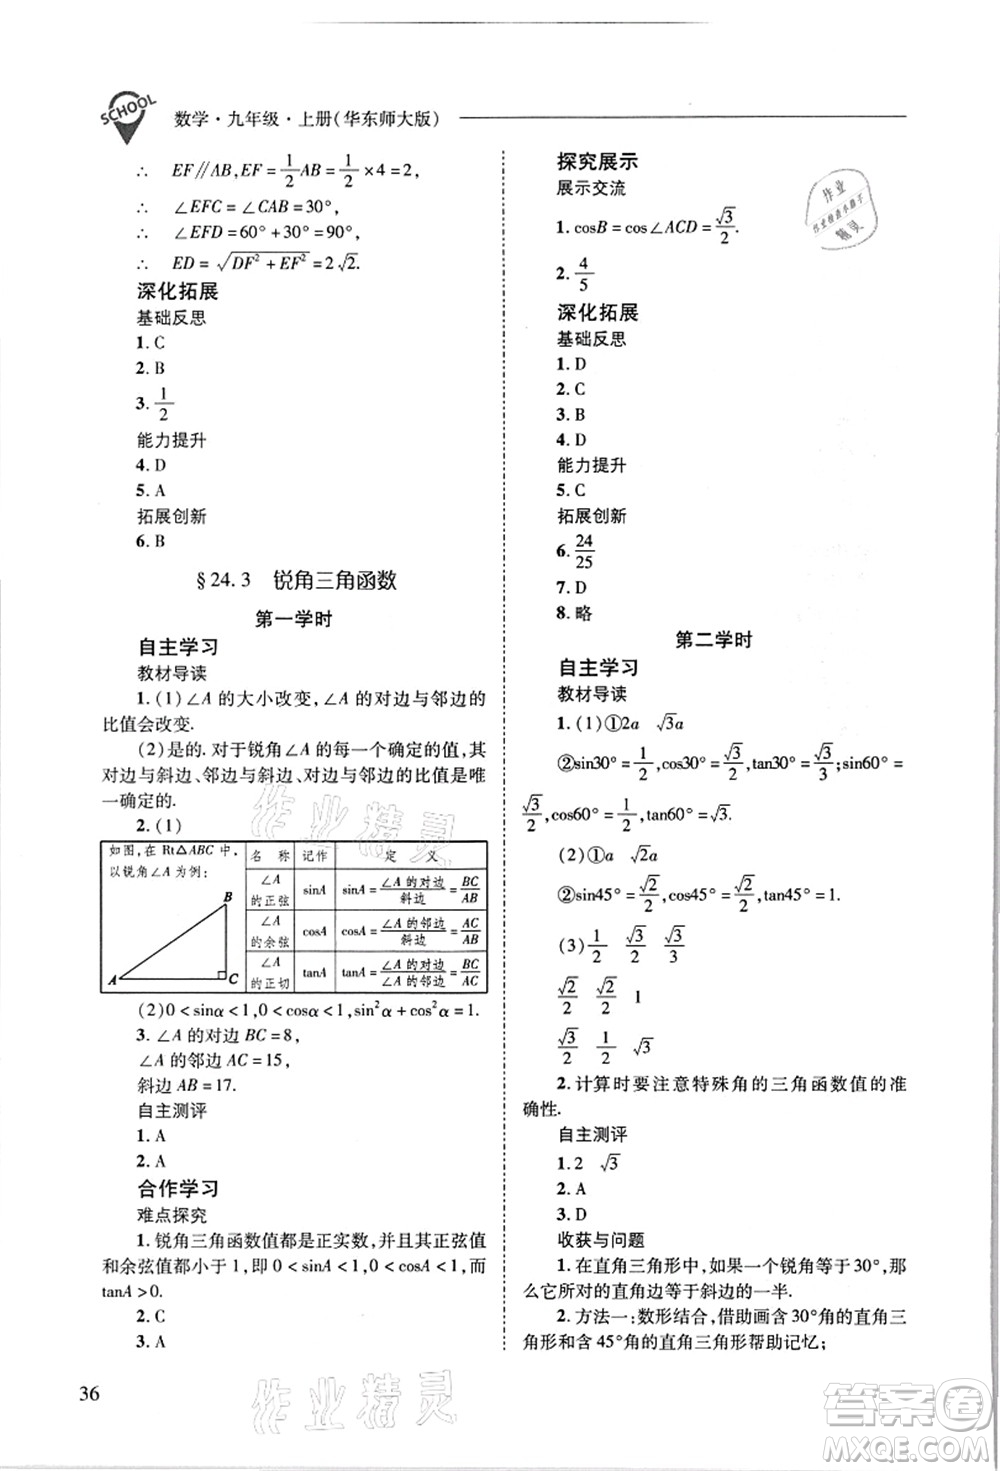 SCHOOL
数学·九年级·上册(华东师大版)
∴ EF∥AB,EF=1/2AB=1/2×4=2,
∴ ∠EFC=∠CAB=30°,
∴ ∠EFD=60°+30°=90°,
∴ ED=√(DF²+EF²)=2√2.
深化拓展
基础反思
1. C
2. B
3. 1/2
能力提升
4. D
5. A
拓展创新
6. B
§24.3 锐角三角函数
第一学时
自主学习
教材导读
1. (1)∠A 的大小改变,∠A 的对边与邻边的
比值会改变.
(2)是的. 对于锐角∠A 的每一个确定的值,其
对边与斜边、邻边与斜边、对边与邻边的比值是唯
一确定的.
2. (1)
如图,在 Rt△ABC 中,
以锐角∠A 为例:
B
A
C
名 称 记作 定 义
∠A的正弦 sinA sinA=∠A 的对边/斜边=BC/AB
∠A的余弦 cosA cosA=∠A 的邻边/斜边=AC/AB
∠A的正切 tanA tanA=∠A 的对边/∠A 的邻边=BC/AC
(2)0<sinα<1,0<cosα<1,sin²α+cos²α=1.
3. ∠A 的对边 BC=8,
∠A 的邻边 AC=15,
斜边 AB=17.
自主测评
1. A
2. A
合作学习
难点探究
1. 锐角三角函数值都是正实数,并且其正弦值
和余弦值都小于 1,即 0<sinA<1,0<cosA<1,而
tanA>0.
2. C
3. A
36
探究展示
展示交流
1. cosB=cos∠ACD=√3/2.
2. 4/5
深化拓展
基础反思
1. D
2. C
3. B
4. D
能力提升
5. C
拓展创新
6. 24/25
7. D
8. 略
第二学时
自主学习
教材导读
1. (1)①2a √3a
②sin30°=1/2,cos30°=√3/2,tan30°=√3/3;sin60°=
√3/2,cos60°=1/2,tan60°=√3.
(2)①a √2a
②sin45°=√2/2,cos45°=√2/2,tan45°=1.
(3)1/2 √3/2 √3/3
√2/2 √2/2 1
√3/2 1/2 √3
2. 计算时要注意特殊角的三角函数值的准
确性.
自主测评
1. 2 √3
2. A
3. D
收获与问题
1. 在直角三角形中,如果一个锐角等于30°,那
么它所对的直角边等于斜边的一半.
2. 方法一:数形结合,借助画含30°角的直角三
角形和含45°角的直角三角形帮助记忆;
作业精灵
作业精灵
作业
精灵
答案圈
MXQE.COM